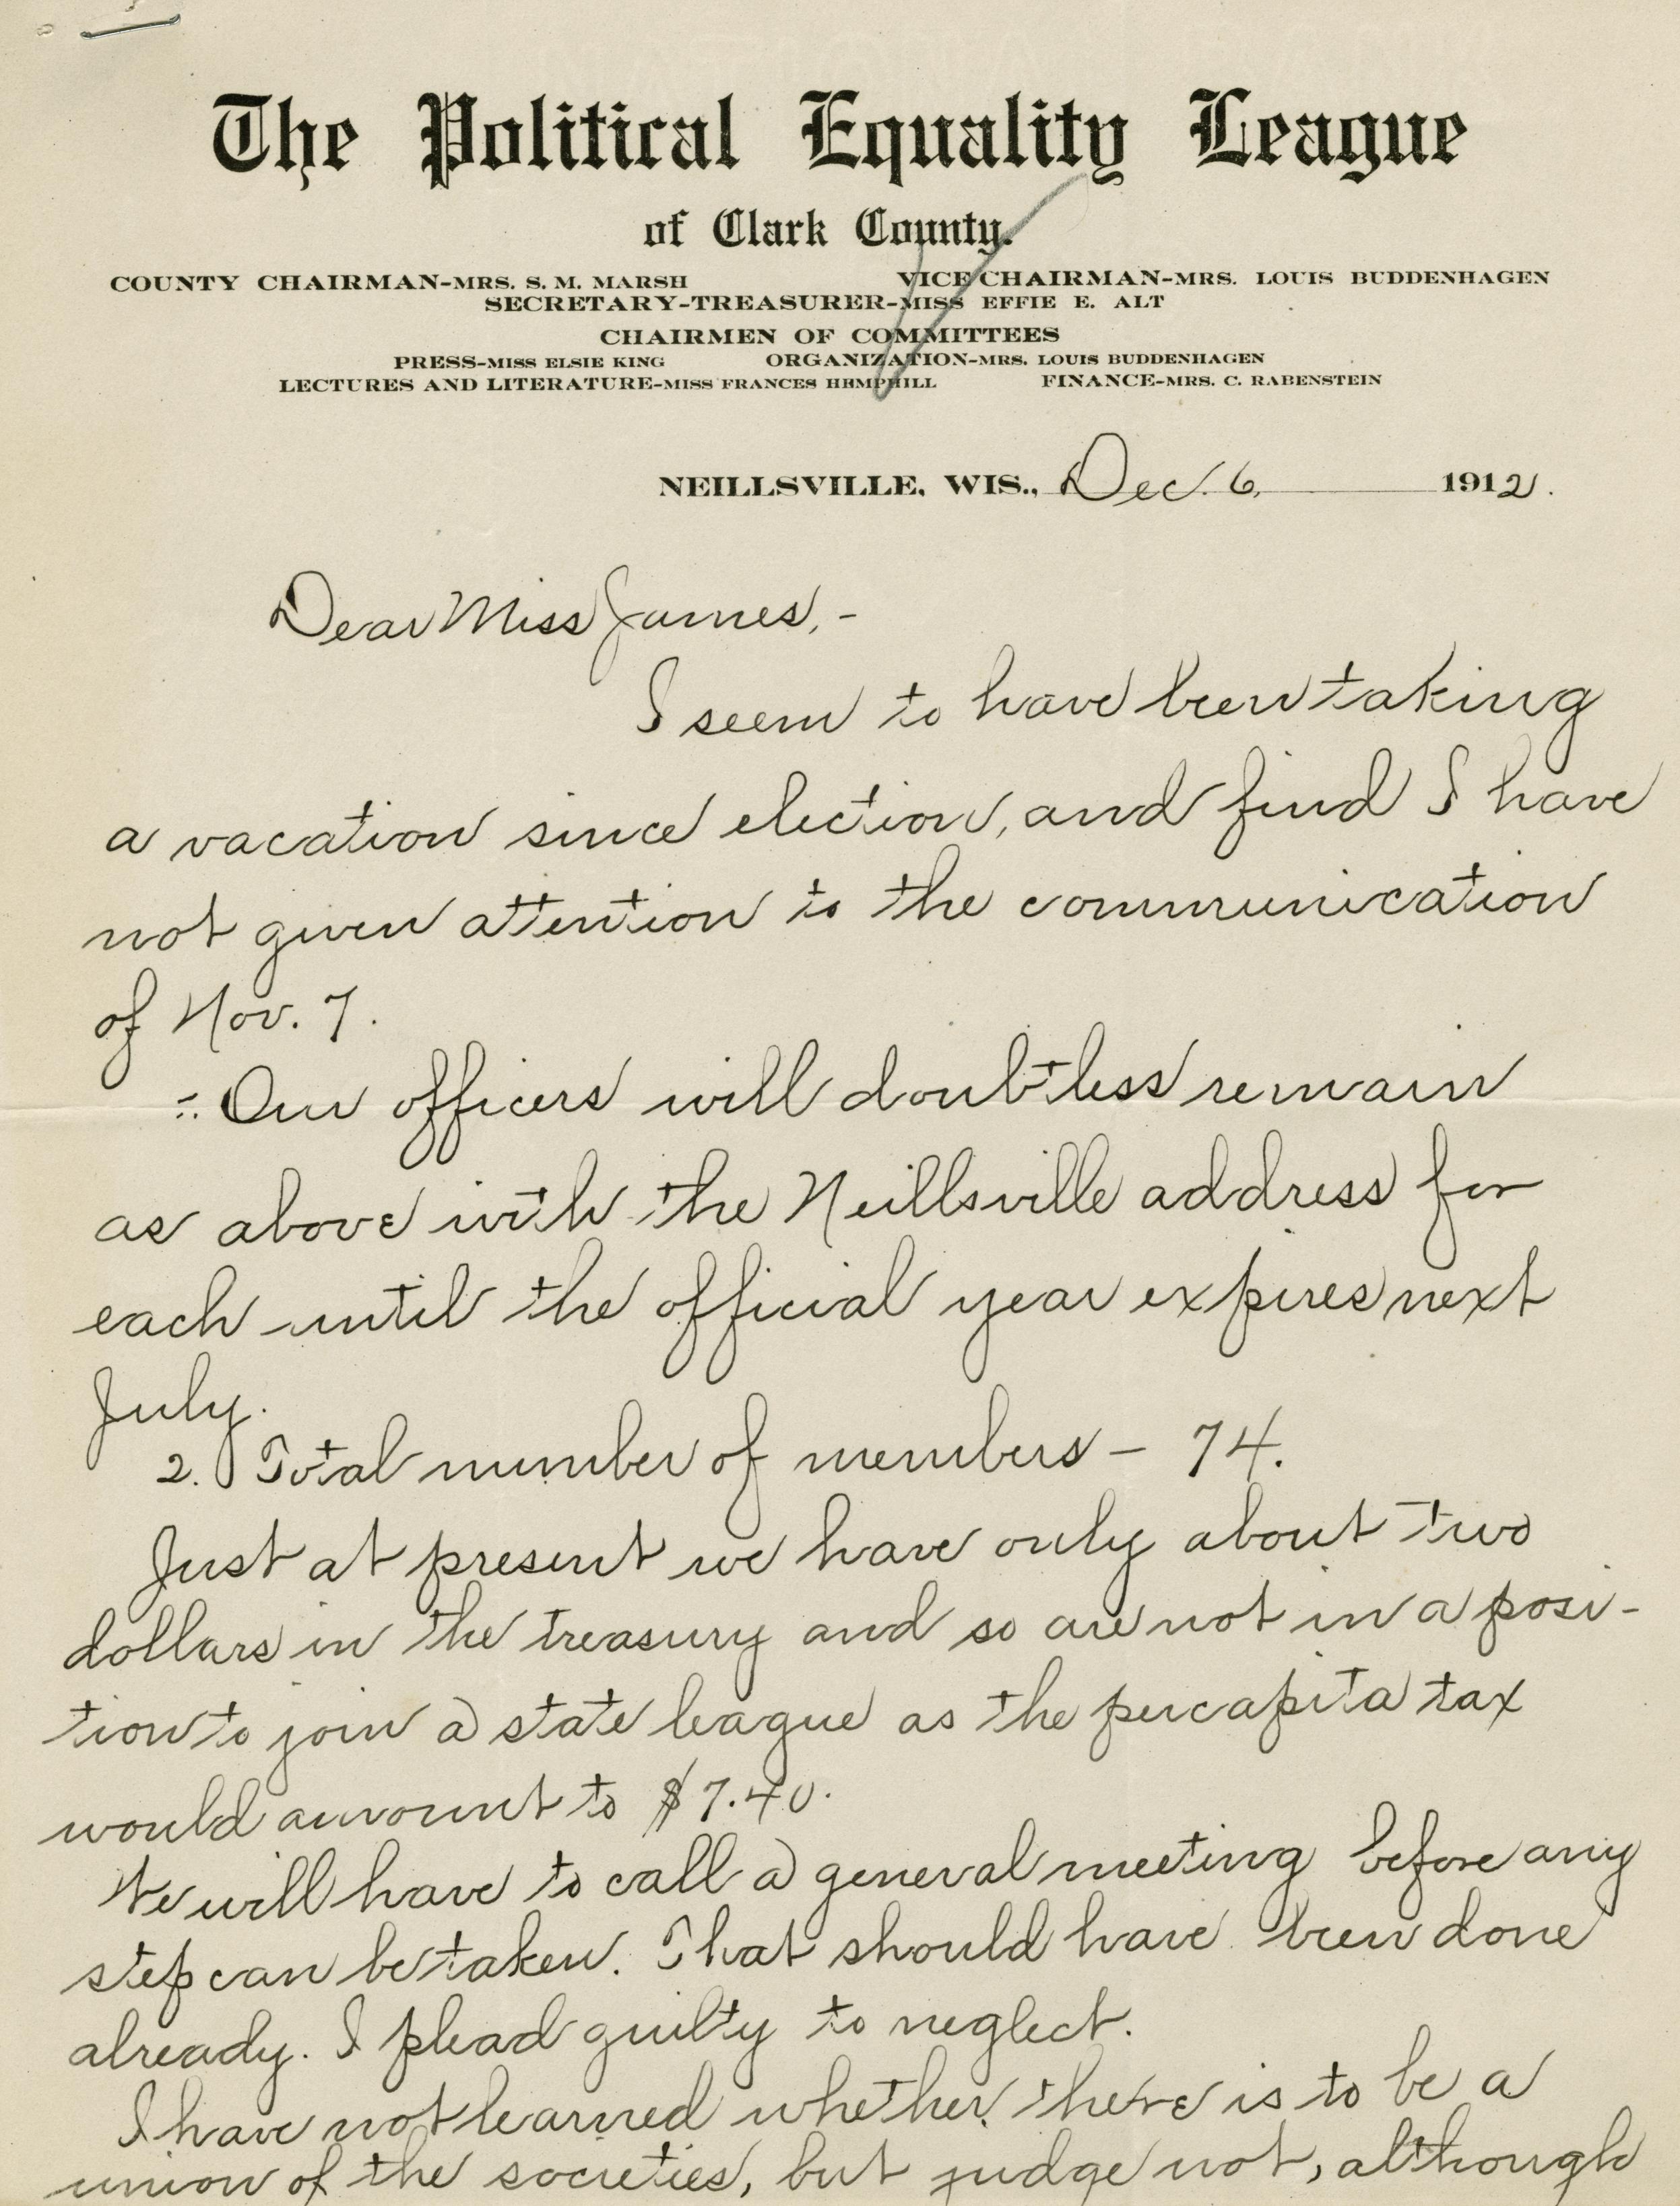 The Political Equality League
of Clark County.
COUNTY CHAIRMAN-MRS. S. M. MARSH VICE CHAIRMAN-MRS. LOUIS BUDDENHAGEN
SECRETARY-TREASURER-MISS EFFIE E. ALT
CHAIRMEN OF COMMITTEES
PRESS-MISS ELSIE KING ORGANIZATION-MRS. LOUIS BUDDENHAGEN
LECTURES AND LITERATURE-MISS FRANCES HEMPHILL FINANCE-MRS. C. RABENSTEIN
NEILLSVILLE, WIS., Dec. 6, 1912.
Dear Miss James,-
I seem to have been taking
a vacation since election, and find I have
not given attention to the communication
of Nov. 7.
Our officers will doubtless remain
as above with the Neillsville address for
each until the official year expires next
July.
2. Total number of members - 74.
Just at present we have only about two
dollars in the treasury and so are not in a posi-
tion to join a state league as the per capita tax
would amount to $7.40.
We will have to call a general meeting before any
step can be taken. That should have been done
already. I plead guilty to neglect.
I have not learned whether there is to be a
union of the societies, but judge not, although